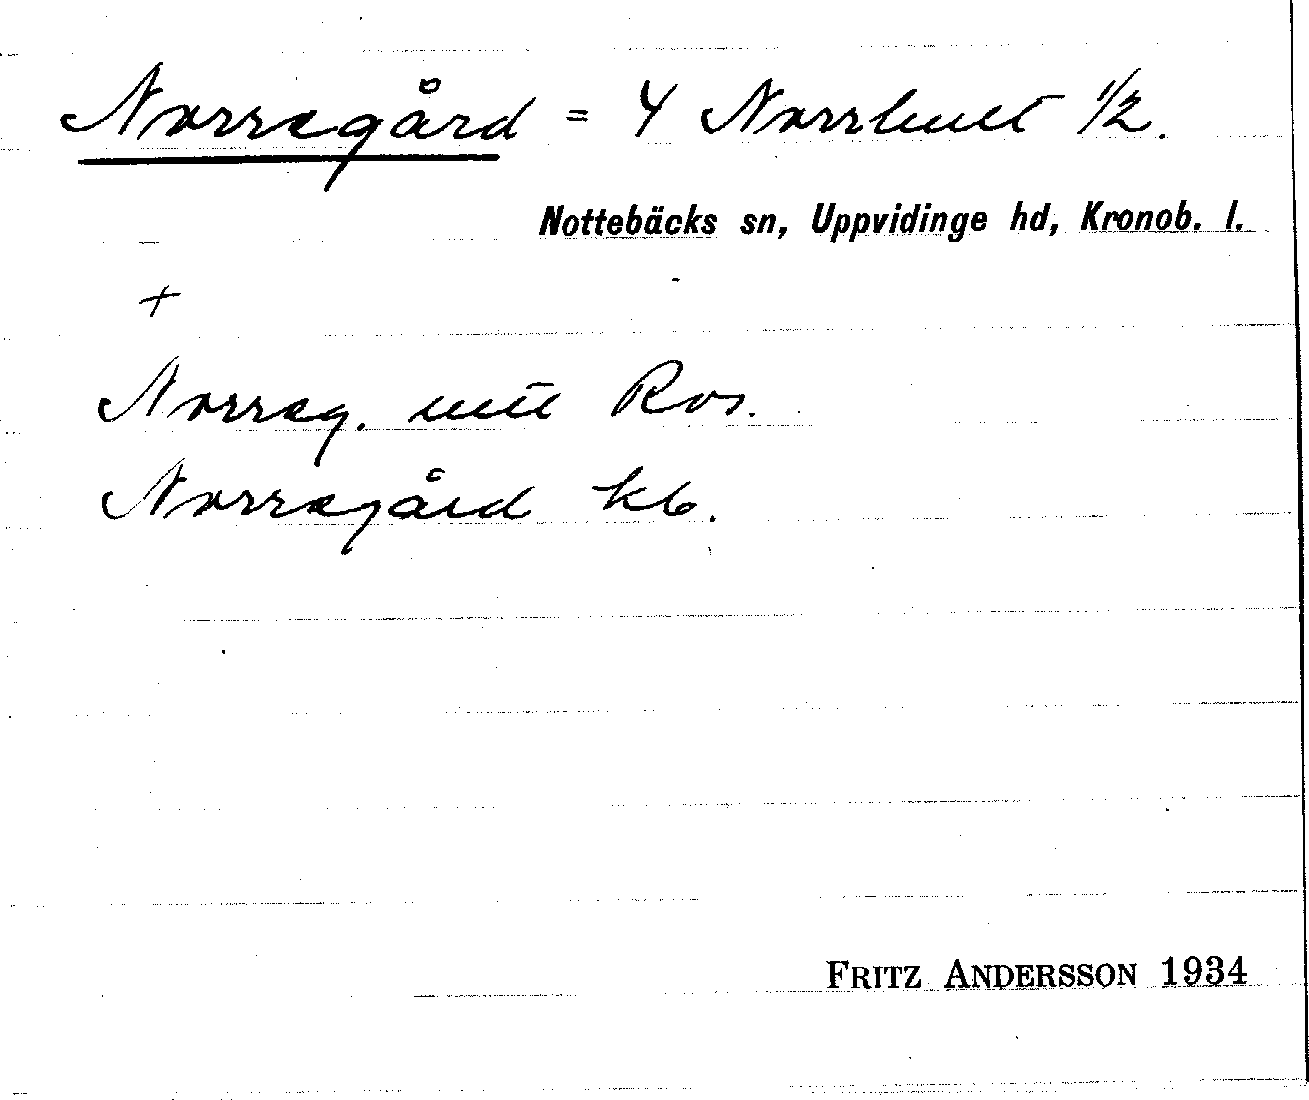 Norregård = 4 Norrhult 1/2.
Nottebäcks sn, Uppvidinge hd, Kronob. l.
+
Norreg. utn Ros.
Norregård kb.
FRITZ ANDERSSON 1934